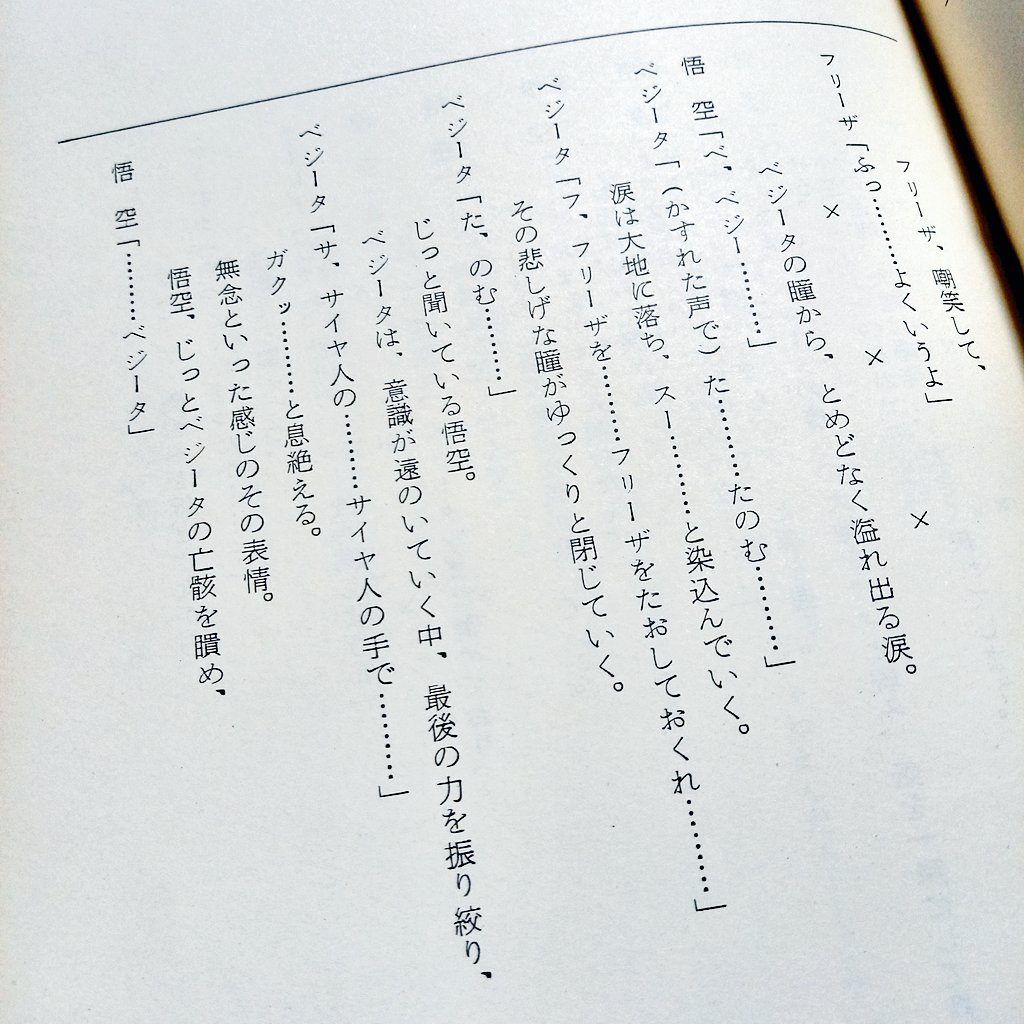 フリーザ、嘲笑して、
フリーザ「ふっ………よくいうよ」
×　×　×
ベジータの瞳から、とめどなく溢れ出る涙。
悟　空「べ、ベジー………」
ベジータ「（かすれた声で）た………たのむ………」
涙は大地に落ち、スー………と染込んでいく。
ベジータ「フ、フリーザを………フリーザをたおしておくれ………」
その悲しげな瞳がゆっくりと閉じていく。
ベジータ「た、のむ………」
じっと聞いている悟空。
ベジータは、意識が遠のいていく中、最後の力を振り絞り、
ベジータ「サ、サイヤ人の………サイヤ人の手で………」
ガクッ………と息絶える。
無念といった感じのその表情。
悟空、じっとベジータの亡骸を瞶め、
悟　空「………ベジータ」